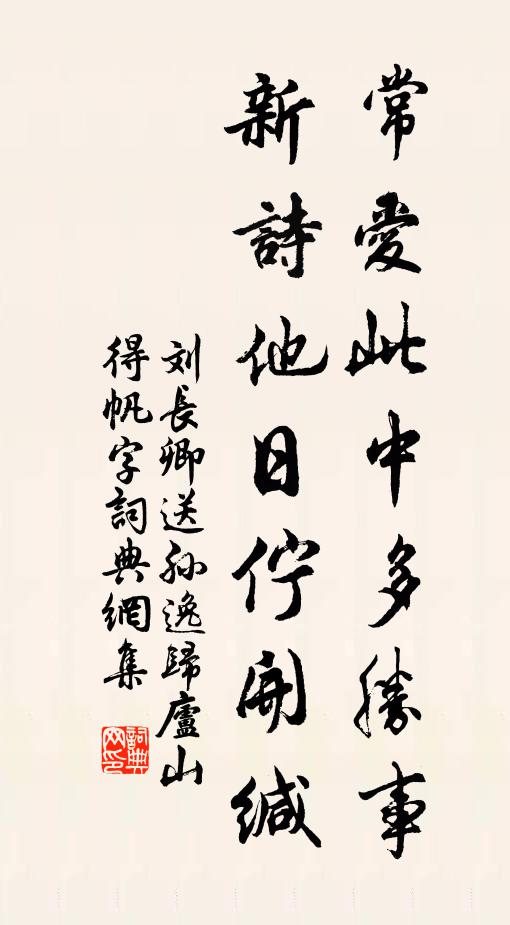 常愛此中多勝事
新詩他日佇開緘
刘長卿送孙逸歸廬山
得帆字詞典網集
詞典
网印